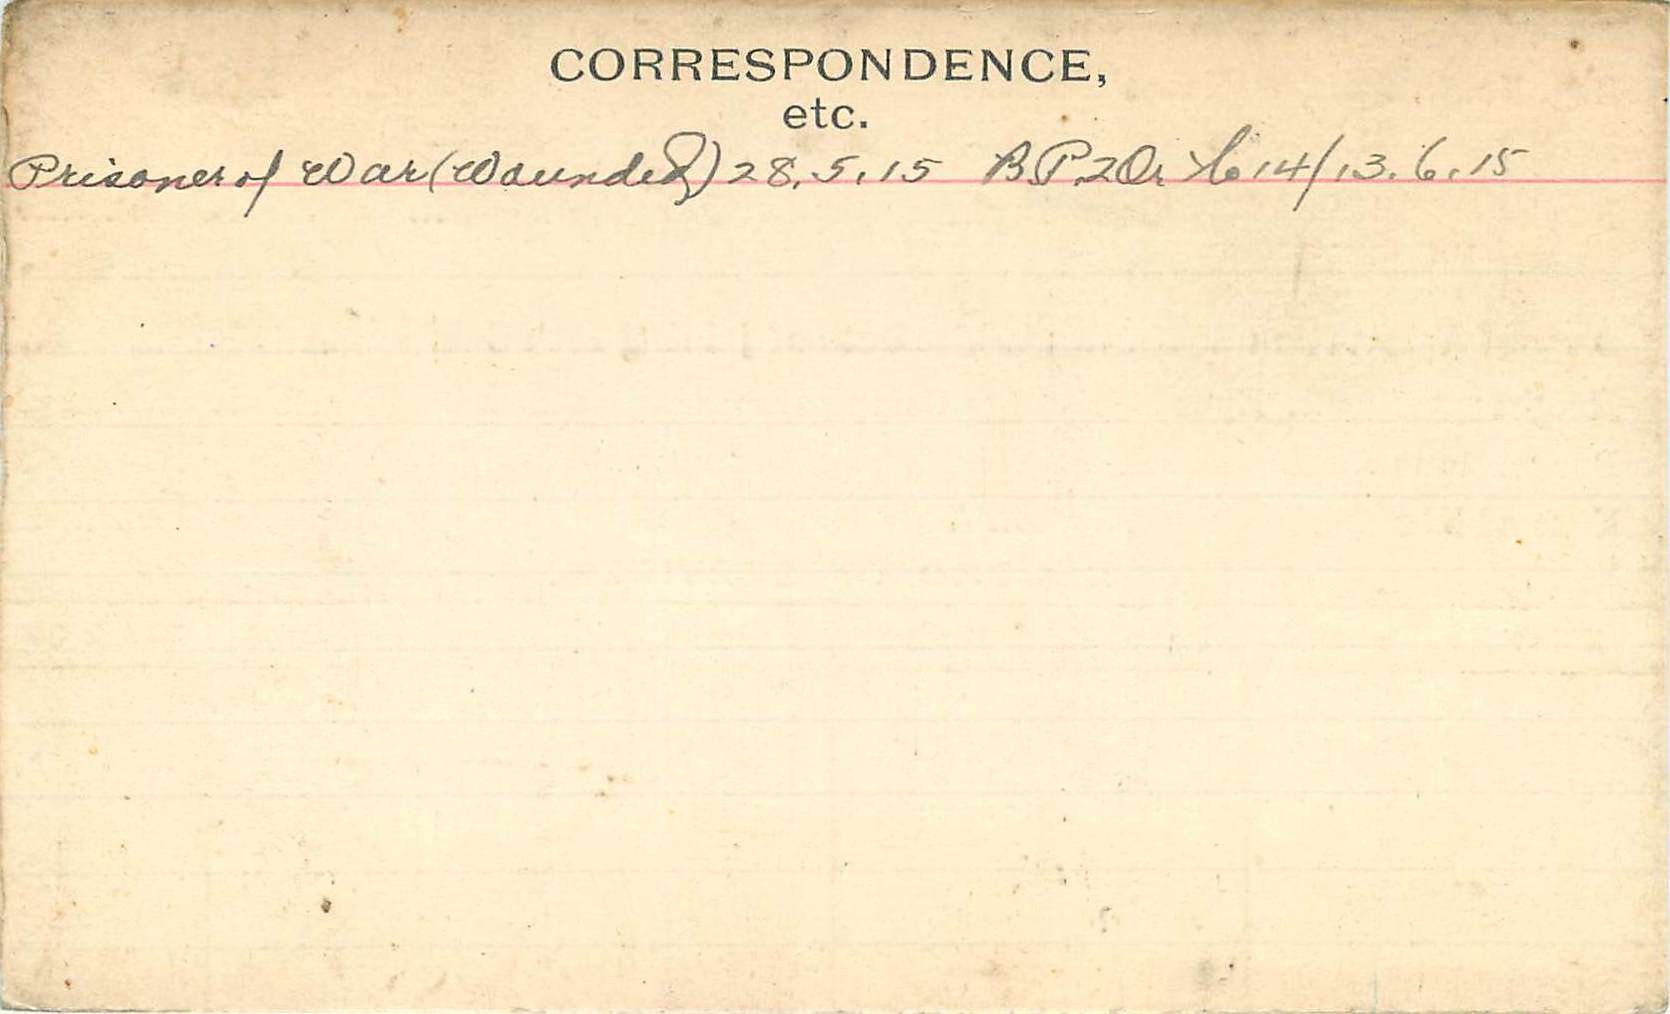 CORRESPONDENCE,
etc.
Prisoner of War (Wounded) 28.5.15 B.P.2Or 14/13.6.15